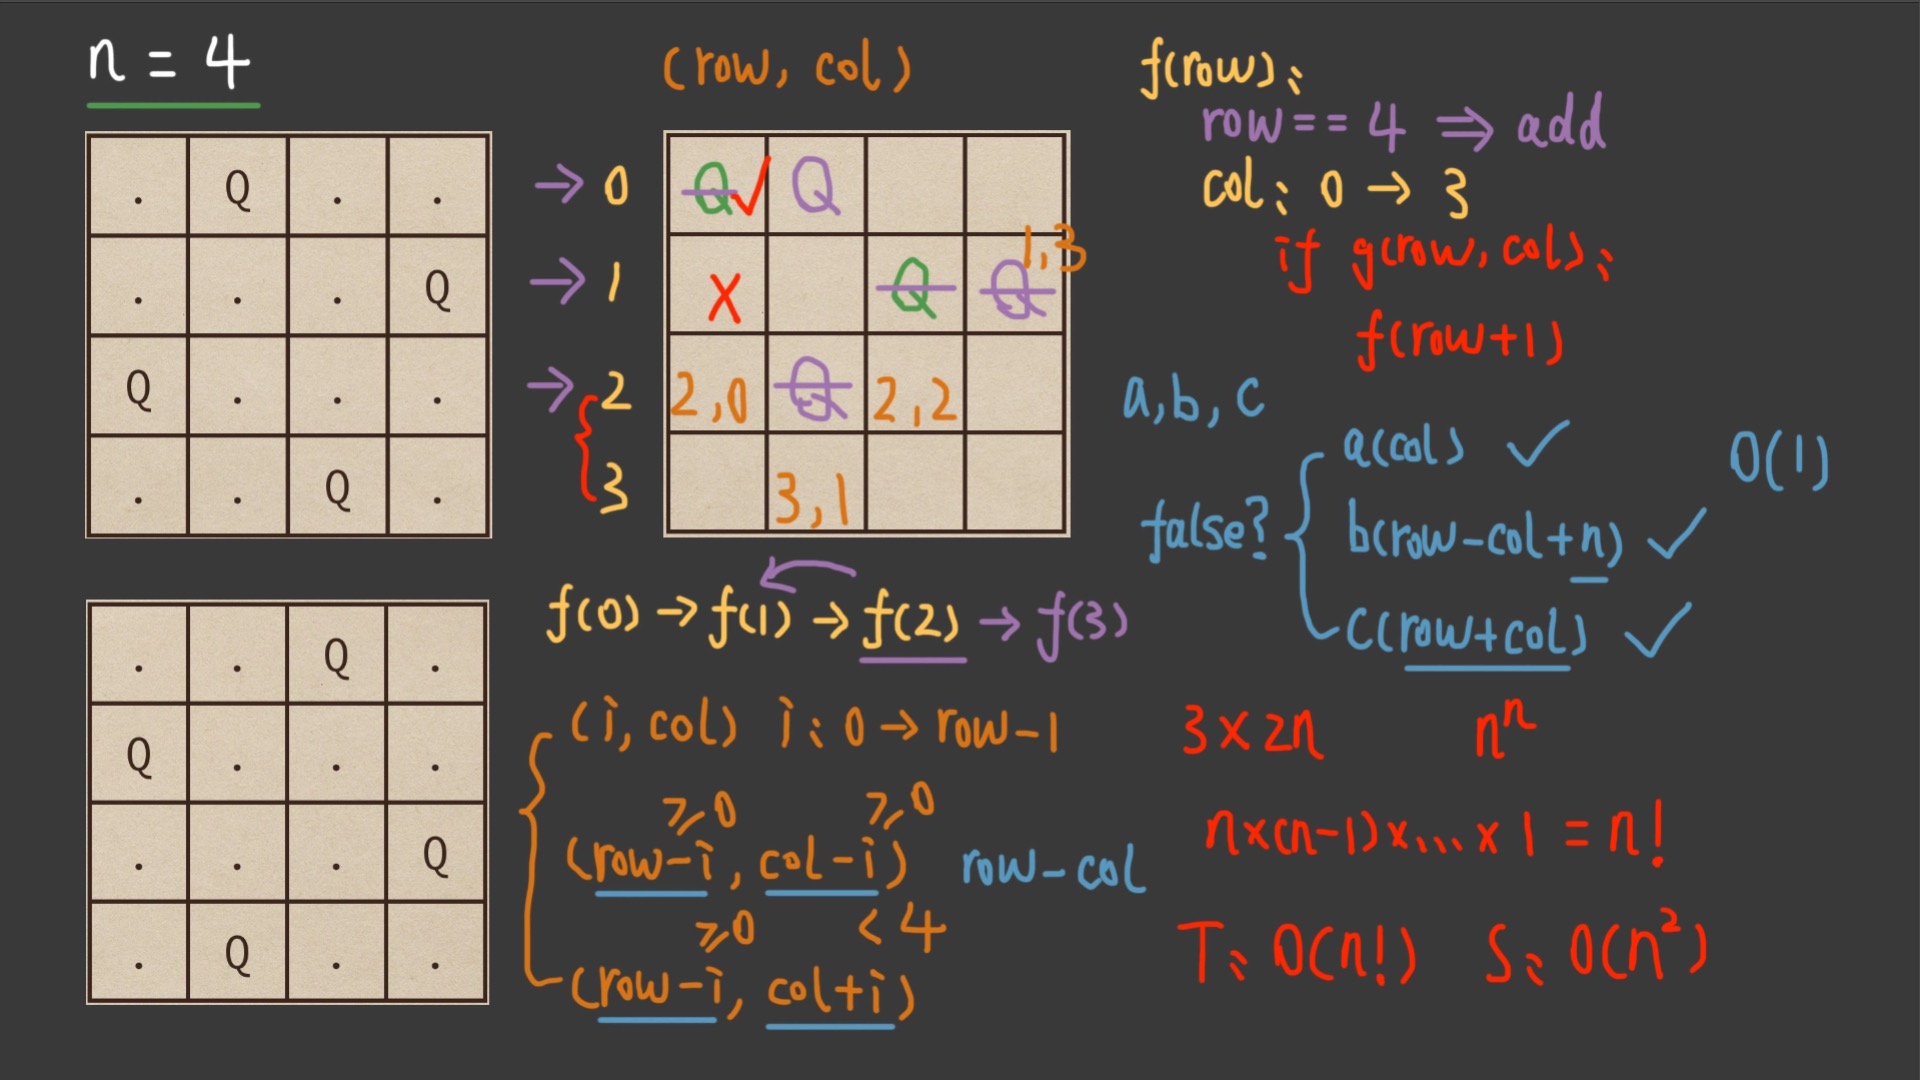 n = 4
. Q . .
. . . Q
Q . . .
. . Q .
. . Q .
Q . . .
. . . Q
. Q . .
(row, col)
→ 0
→ 1
→ 2
3
Q ✓ Q
X Q Q 1,3
2,0 Q 2,2
3,1
f(0) → f(1) → f(2) → f(3)
(i, col) i: 0 → row-1
≥0 ≥0
(row-i, col-i) row-col
≥0 <4
(row-i, col+i)
f(row):
row == 4 ⇒ add
col: 0 → 3
if g(row, col):
f(row+1)
a, b, c
false?
a(col) ✓ O(1)
b(row-col+n) ✓
c(row+col) ✓
3×2n nⁿ
n×(n-1)×...×1 = n!
T: O(n!) S: O(n²)